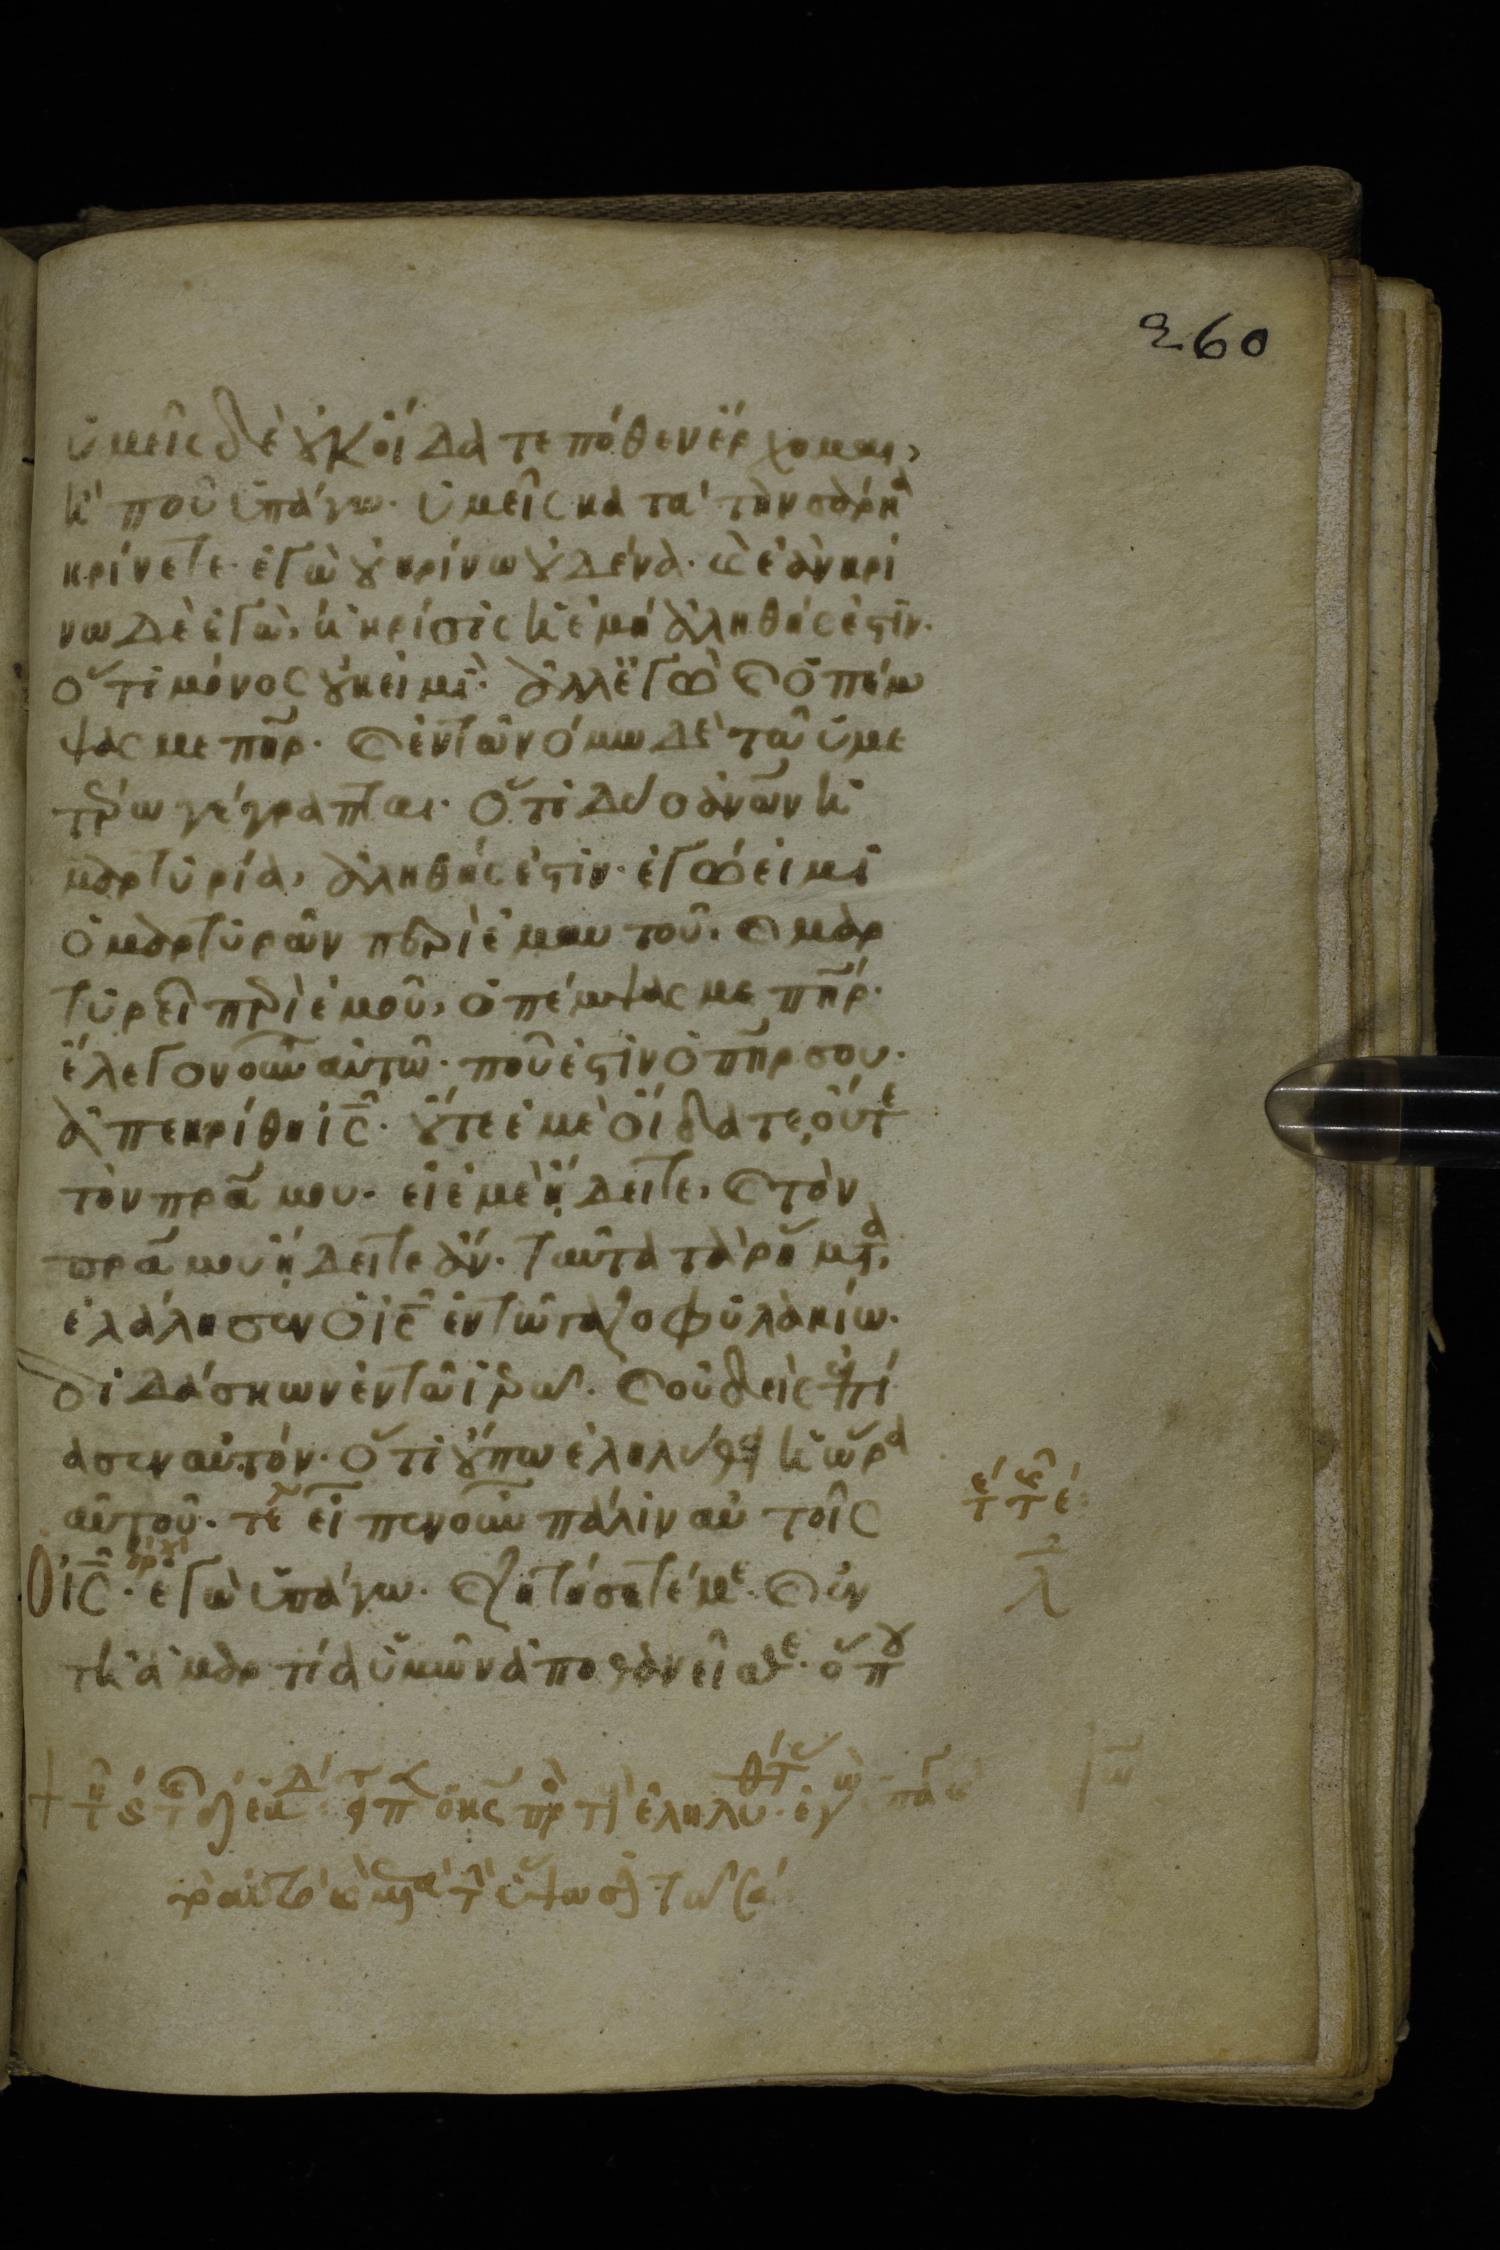 260
ὑμεῖς δὲ οὐκ οἴδατε πόθεν ἔρχομαι,
κ ποῦ ὑπάγω. ὑμεῖς κατὰ τὴν σάρκα
κρίνετε. ἐγὼ οὐ κρίνω οὐδένα. κ ἐὰν κρί
νω δὲ ἐγὼ, ἡ κρίσις ἡ ἐμὴ ἀληθής ἐστιν.
ὅτι μόνος οὐκ εἰμὶ. ἀλλ ἐγὼ κ ὁ πέμ
ψας με πηρ. κ ἐν τῶ νόμω δὲ τῶ ὑμε
τέρω γέγραπται. ὅτι δύο ἀνων ἡ
μαρτυρία, ἀληθής ἐστιν. ἐγώ εἰμι
ὁ μαρτυρῶν περὶ ἐμαυτοῦ. κ μαρ
τυρεῖ περὶ ἐμοῦ, ὁ πέμψας με πηρ.
ἔλεγον οὖν αὐτῶ. ποῦ ἐστιν ὁ πηρ σου.
ἀπεκρίθη ις. οὔτε ἐμὲ οἴδατε, οὔτε
τὸν πρα μου. εἰ ἐμὲ ἤδειτε, κ τὸν
πρα μου ἤδειτε ἄν. ταῦτα τὰ ῥήματα,
ἐλάλησεν ὁ ις ἐν τῶ γαζοφυλακίω.
διδάσκων ἐν τῶ ἱερῶ. κ οὐδεὶς ἐπί
ασεν αὐτόν. ὅτι οὔπω ἐληλύθει ἡ ὥρα
αὐτοῦ. τε εἶπεν οὖν πάλιν αὐτοῖς
ὁ ις. ἐγὼ ὑπάγω. κ ζητήσετέ με. κ ἐν
τῆ ἁμαρτία ὑμῶν ἀποθανεῖσθε. ὅπου